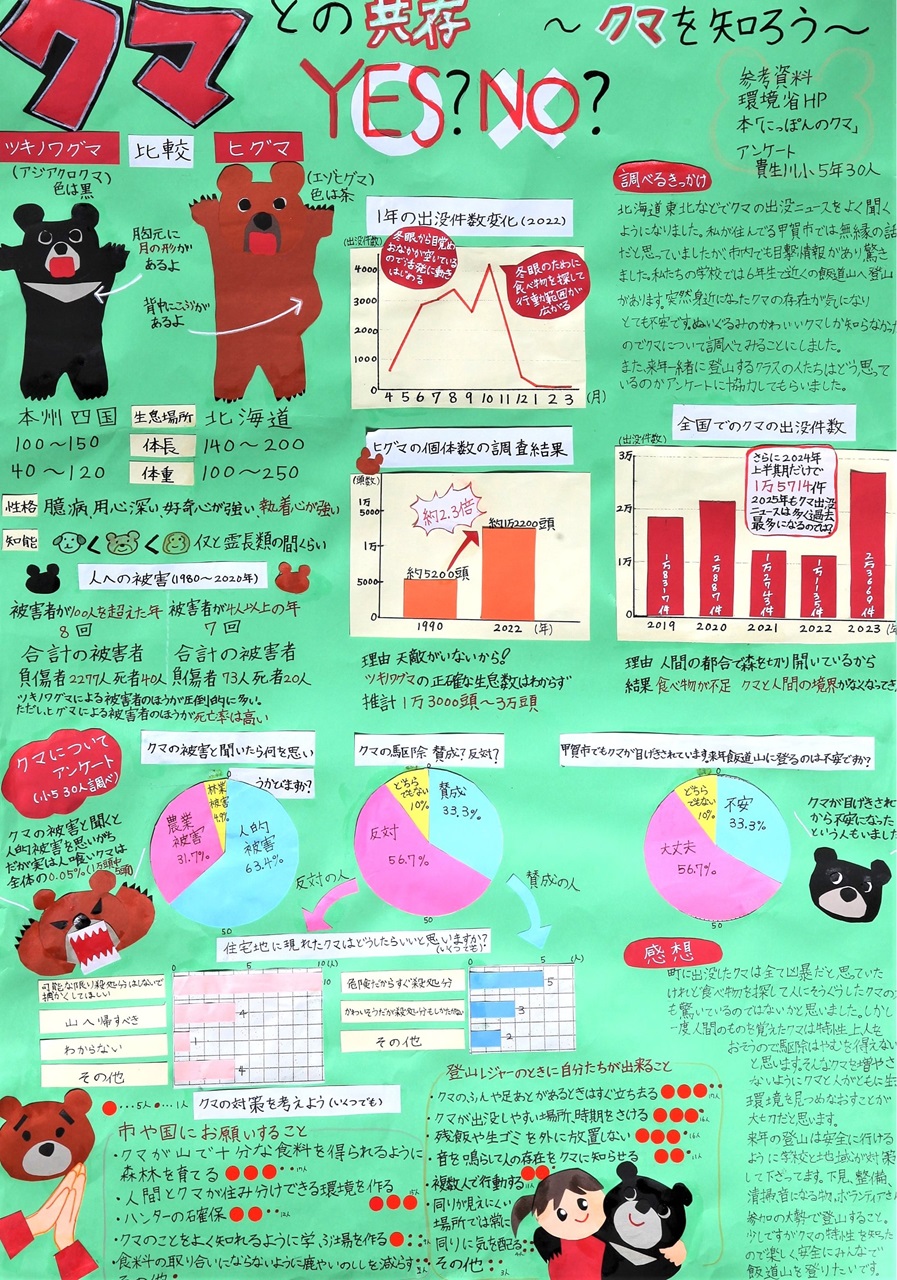 クマとの共存 ～クマを知ろう～
YES?NO?
参考資料
環境省HP
本「にっぽんのクマ」
アンケート
貴生川小5年30人
ツキノワグマ 比較 ヒグマ
(アジアクロクマ)
色は黒
(エゾヒグマ)
色は茶
胸元に
月の形が
あるよ
背中にこぶが
あるよ
本州 四国 生息場所 北海道
100～150 体長 140～200
40～120 体重 100～250
性格 臆病、用心深い 好奇心が強い、執着心が強い
知能 < < 犬と霊長類の間くらい
人への被害(1980～2020年)
被害者が100人を超えた年
8回
被害者が4人以上の年
7回
合計の被害者
負傷者2277人死者40人
合計の被害者
負傷者73人死者20人
ツキノワグマによる被害者のほうが圧倒的に多い。
ただし、ヒグマによる被害者のほうが死亡率は高い
1年の出没件数変化(2022)
(出没件数)
冬眠から目覚め
おなかが空いている
ので活発に動き
はじめる
冬眠のために
食べ物を探して
行動範囲が
広がる
4000
3000
2000
1000
0
4 5 6 7 8 9 10 11 12 1 2 3 (月)
ヒグマの個体数の調査結果
(頭数)
1万
5000
1万
5000
0
約2.3倍
約5200頭
約1万2200頭
1990 2022 (年)
理由 天敵がいないから!
ツキノワグマの正確な生息数はわからず
推計1万3000頭～3万頭
調べるきっかけ
北海道東北などでクマの出没ニュースをよく聞く
ようになりました。私が住んでる甲賀市では無縁の話
だと思っていましたが、市内でも目撃情報があり、驚き
ました。私たちの学校では6年生で近くの飯道山へ登山
があります。突然身近になったクマの存在が気になり
とても不安です。ぬいぐるみのかわいいクマしか知らなかった
のでクマについて調べてみることにしました。
また、来年一緒に登山するクラスの人たちはどう思って
いるのかアンケートに協力してもらいました。
全国でのクマの出没件数
(出没件数)
3万
2万
1万
0
さらに2024年
上半期だけで
1万5714件
2025年もクマ出没
ニュースは多く過去
最多になるのでは?
1万8317件
2万887件
1万2743件
1万1135件
2万3669件
2019 2020 2021 2022 2023
理由 人間の都合で森を切り開いているから
結果 食べ物が不足 クマと人間の境界がなくなってき
クマについて
アンケート
(小5 30人調べ)
クマの被害と聞くと
人的被害を思いがち
だが実は人喰いクマは
全体の0.05%(1万頭中5頭)
クマの被害と聞いたら何を思い
うかびますか?
0
林業被害
4.9%
農業
被害
31.7%
人的
被害
63.4%
クマの駆除 賛成?反対?
0
どちら
でもない
10%
賛成
33.3%
反対
56.7%
50
反対の人
賛成の人
甲賀市でもクマが目げきされています。来年飯道山に登るのは不安ですか?
0
どちら
でもない
10%
不安
33.3%
大丈夫
56.7%
50
クマが目げきされ
から不安になった
という人もいました
住宅地に現れたクマはどうしたらいいと思いますか?
(いくつでも)
0 5 10(人)
可能な限り殺処分はしないで
捕かくしてほしい
10
山へ帰すべき
4
わからない
1
その他
4
0 5 (人)
危険だからすぐ殺処分
5
かわいそうだが殺処分もしかたがない
3
その他
2
感想
町に出没したクマは全て凶暴だと思っていた
けれど食べ物を探して人にそうぐうしたクマの
も驚いているのではないかと思いました。しかし
一度人間のものを覚えたクマは特性上人を
おそうので駆除はやむを得ない
と思います。そんなクマを増やさ
ないようにクマと人がともに生
環境を見つめなおすことが
大切だと思います。
来年の登山は安全に行ける
ように学校と地域が対策
して下さってます。下見、整備、
清掃、音になる物、ボランティアさん
参加の大勢で登山すること。
少しですがクマの特性を知った
ので楽しく安全にみんなで
飯道山を登りたいです。
…5人 …1人 クマの対策を考えよう(いくつでも)
市や国にお願いすること
・クマが山で十分な食料を得られるように
森林を育てる
・人間とクマが住み分けできる環境を作る
・ハンターの確保
・クマのことをよく知れるように学ぶ場を作る
・食料の取り合いにならないように鹿やいのししを減らす
・その他
登山レジャーのときに自分たちが出来ること
・クマのふんや足あとがあるときはすぐ立ち去る
・クマが出没しやすい場所、時期をさける
・残飯や生ゴミを外に放置しない
・音を鳴らして人の存在をクマに知らせる
・複数人で行動する
・周りが見えにくい
場所では常に
周りに気を配る
・その他